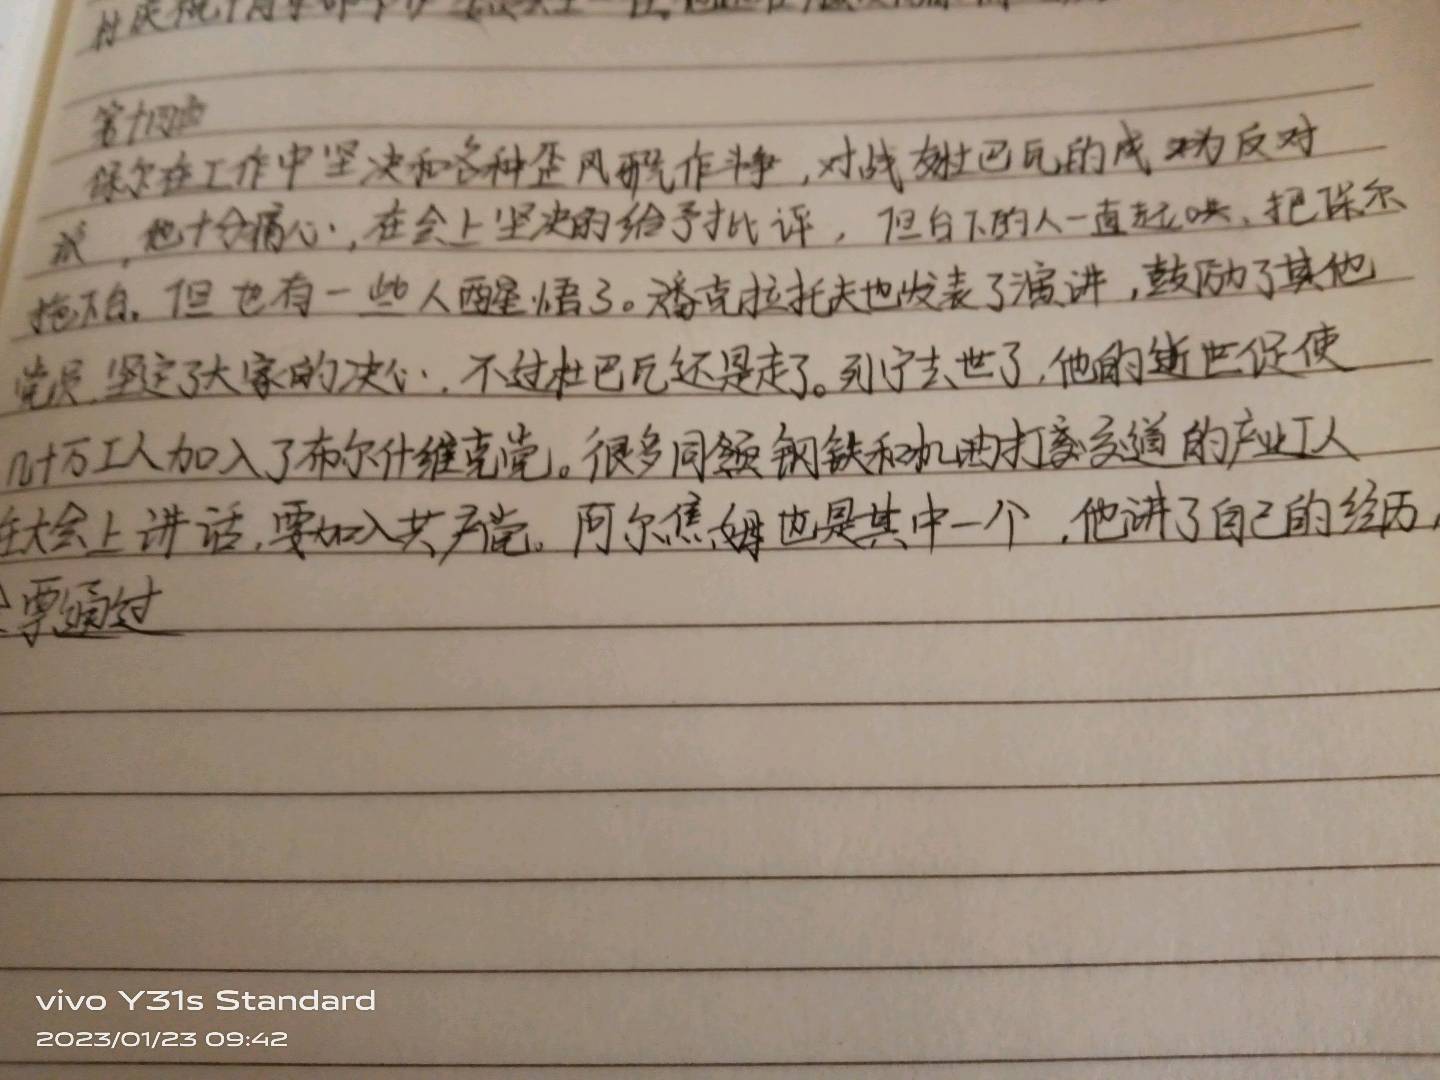 第十四章
保尔在工作中坚决和各种歪风邪气作斗争，对战友杜巴瓦的成为反对
派，他十分痛心，在会上坚决的给予批评，但台下的人一直起哄、把保尔
拖下台。但也有一些人醒悟了。潘克拉托夫也发表了演讲，鼓励了其他
党员，坚定了大家的决心，不过杜巴瓦还是走了。列宁去世了，他的逝世促使
几十万工人加入了布尔什维克党。很多同领钢铁和机油打交道的产业工人
在大会上讲话，要加入共产党。阿尔焦姆也是其中一个，他讲了自己的经历，
票通过
vivo Y31s Standard
2023/01/23 09:42